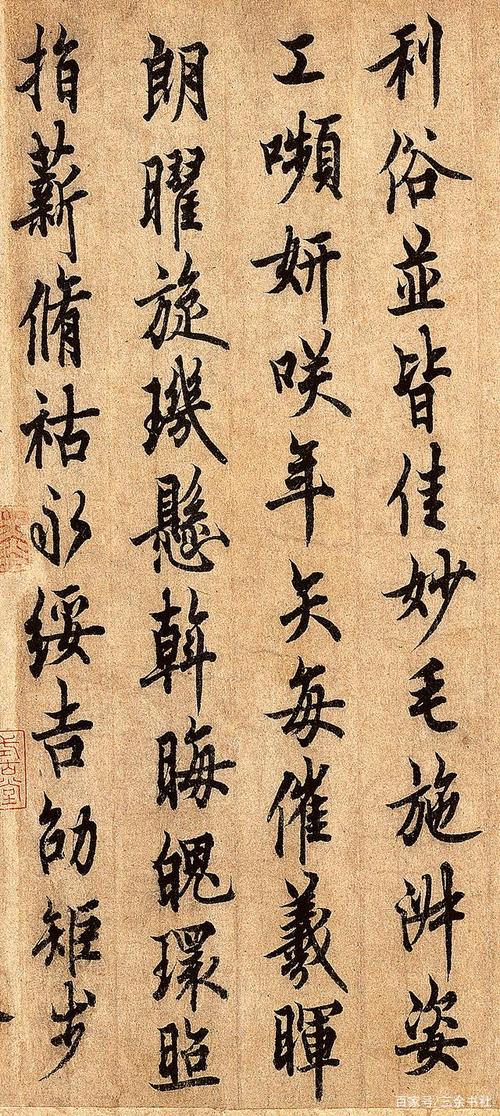 利俗並皆佳妙毛施淑姿
工嚬妍咲年矢每催羲暉
朗曜旋璣懸斡晦魄環照
指薪脩祜永綏吉劭矩步
百家号/三余书社